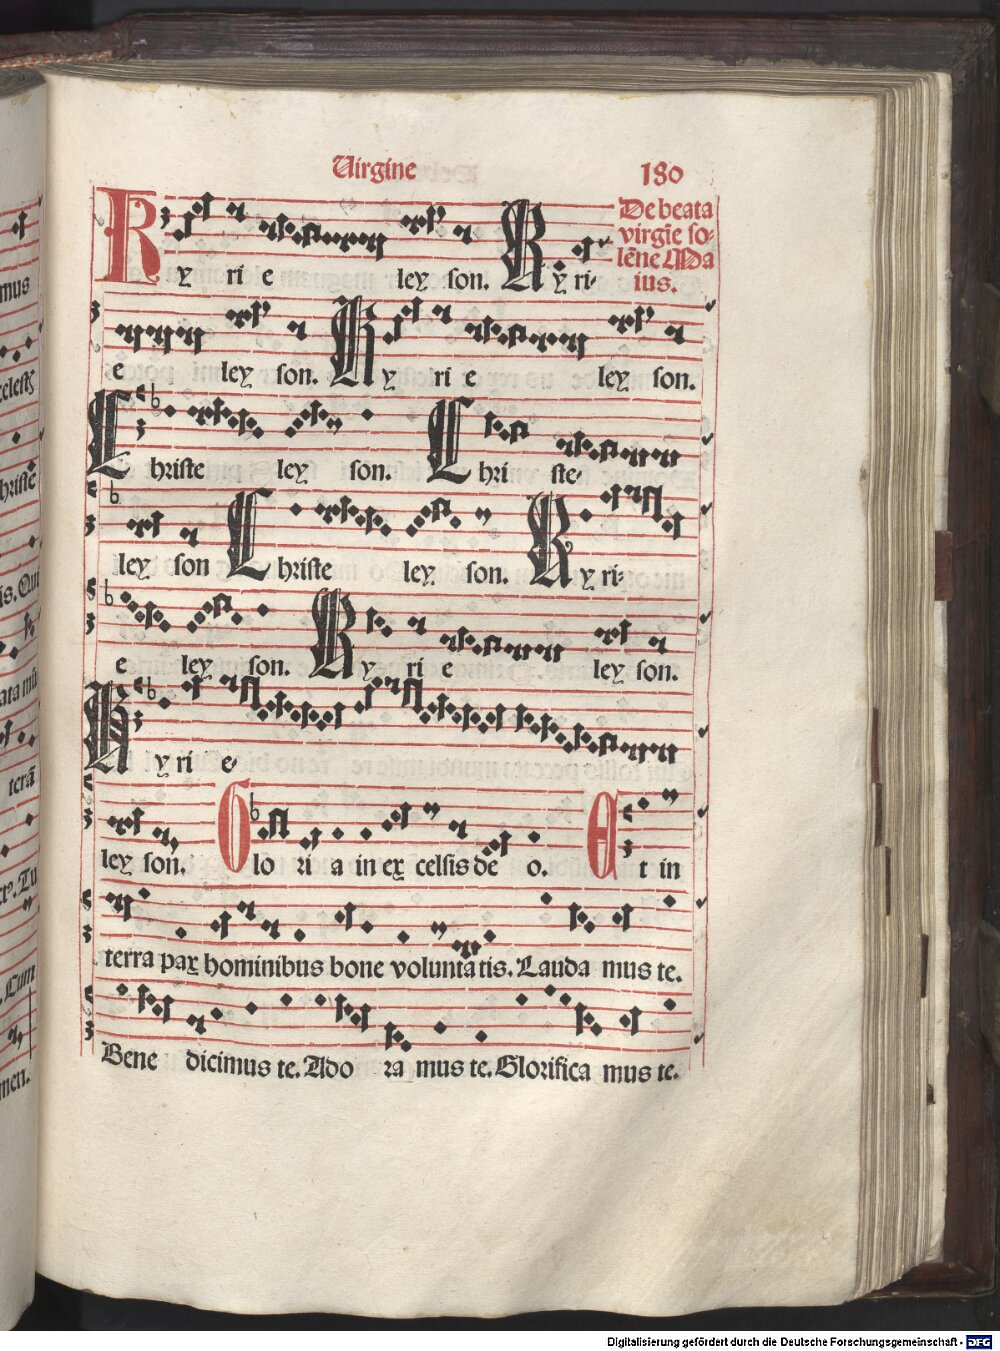 Uirgine 180
De beata
virgīe so-
lēne Ma
ius.
Ky ri e ley son. Ky ri-
e ley son. Ky ri e ley son.
Christe ley son. Chri ste-
ley son Christe ley son. Ky ri-
e ley son. Ky ri e ley son.
Ky ri e-
ley son. Glo ri a in ex celsis de o. Et in
terra pax hominibus bone volunta tis. Lauda mus te.
Bene dicimus te. Ado ra mus te. Glorifica mus te.
mus
celesti
christe
is. Qui
terā
Cum
men.
Digitalisierung gefördert durch die Deutsche Forschungsgemeinschaft - DFG